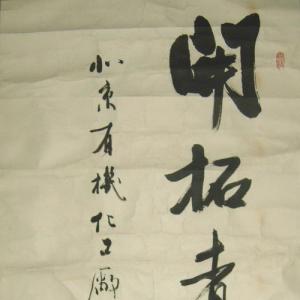 開拓者
北京有機化工廠